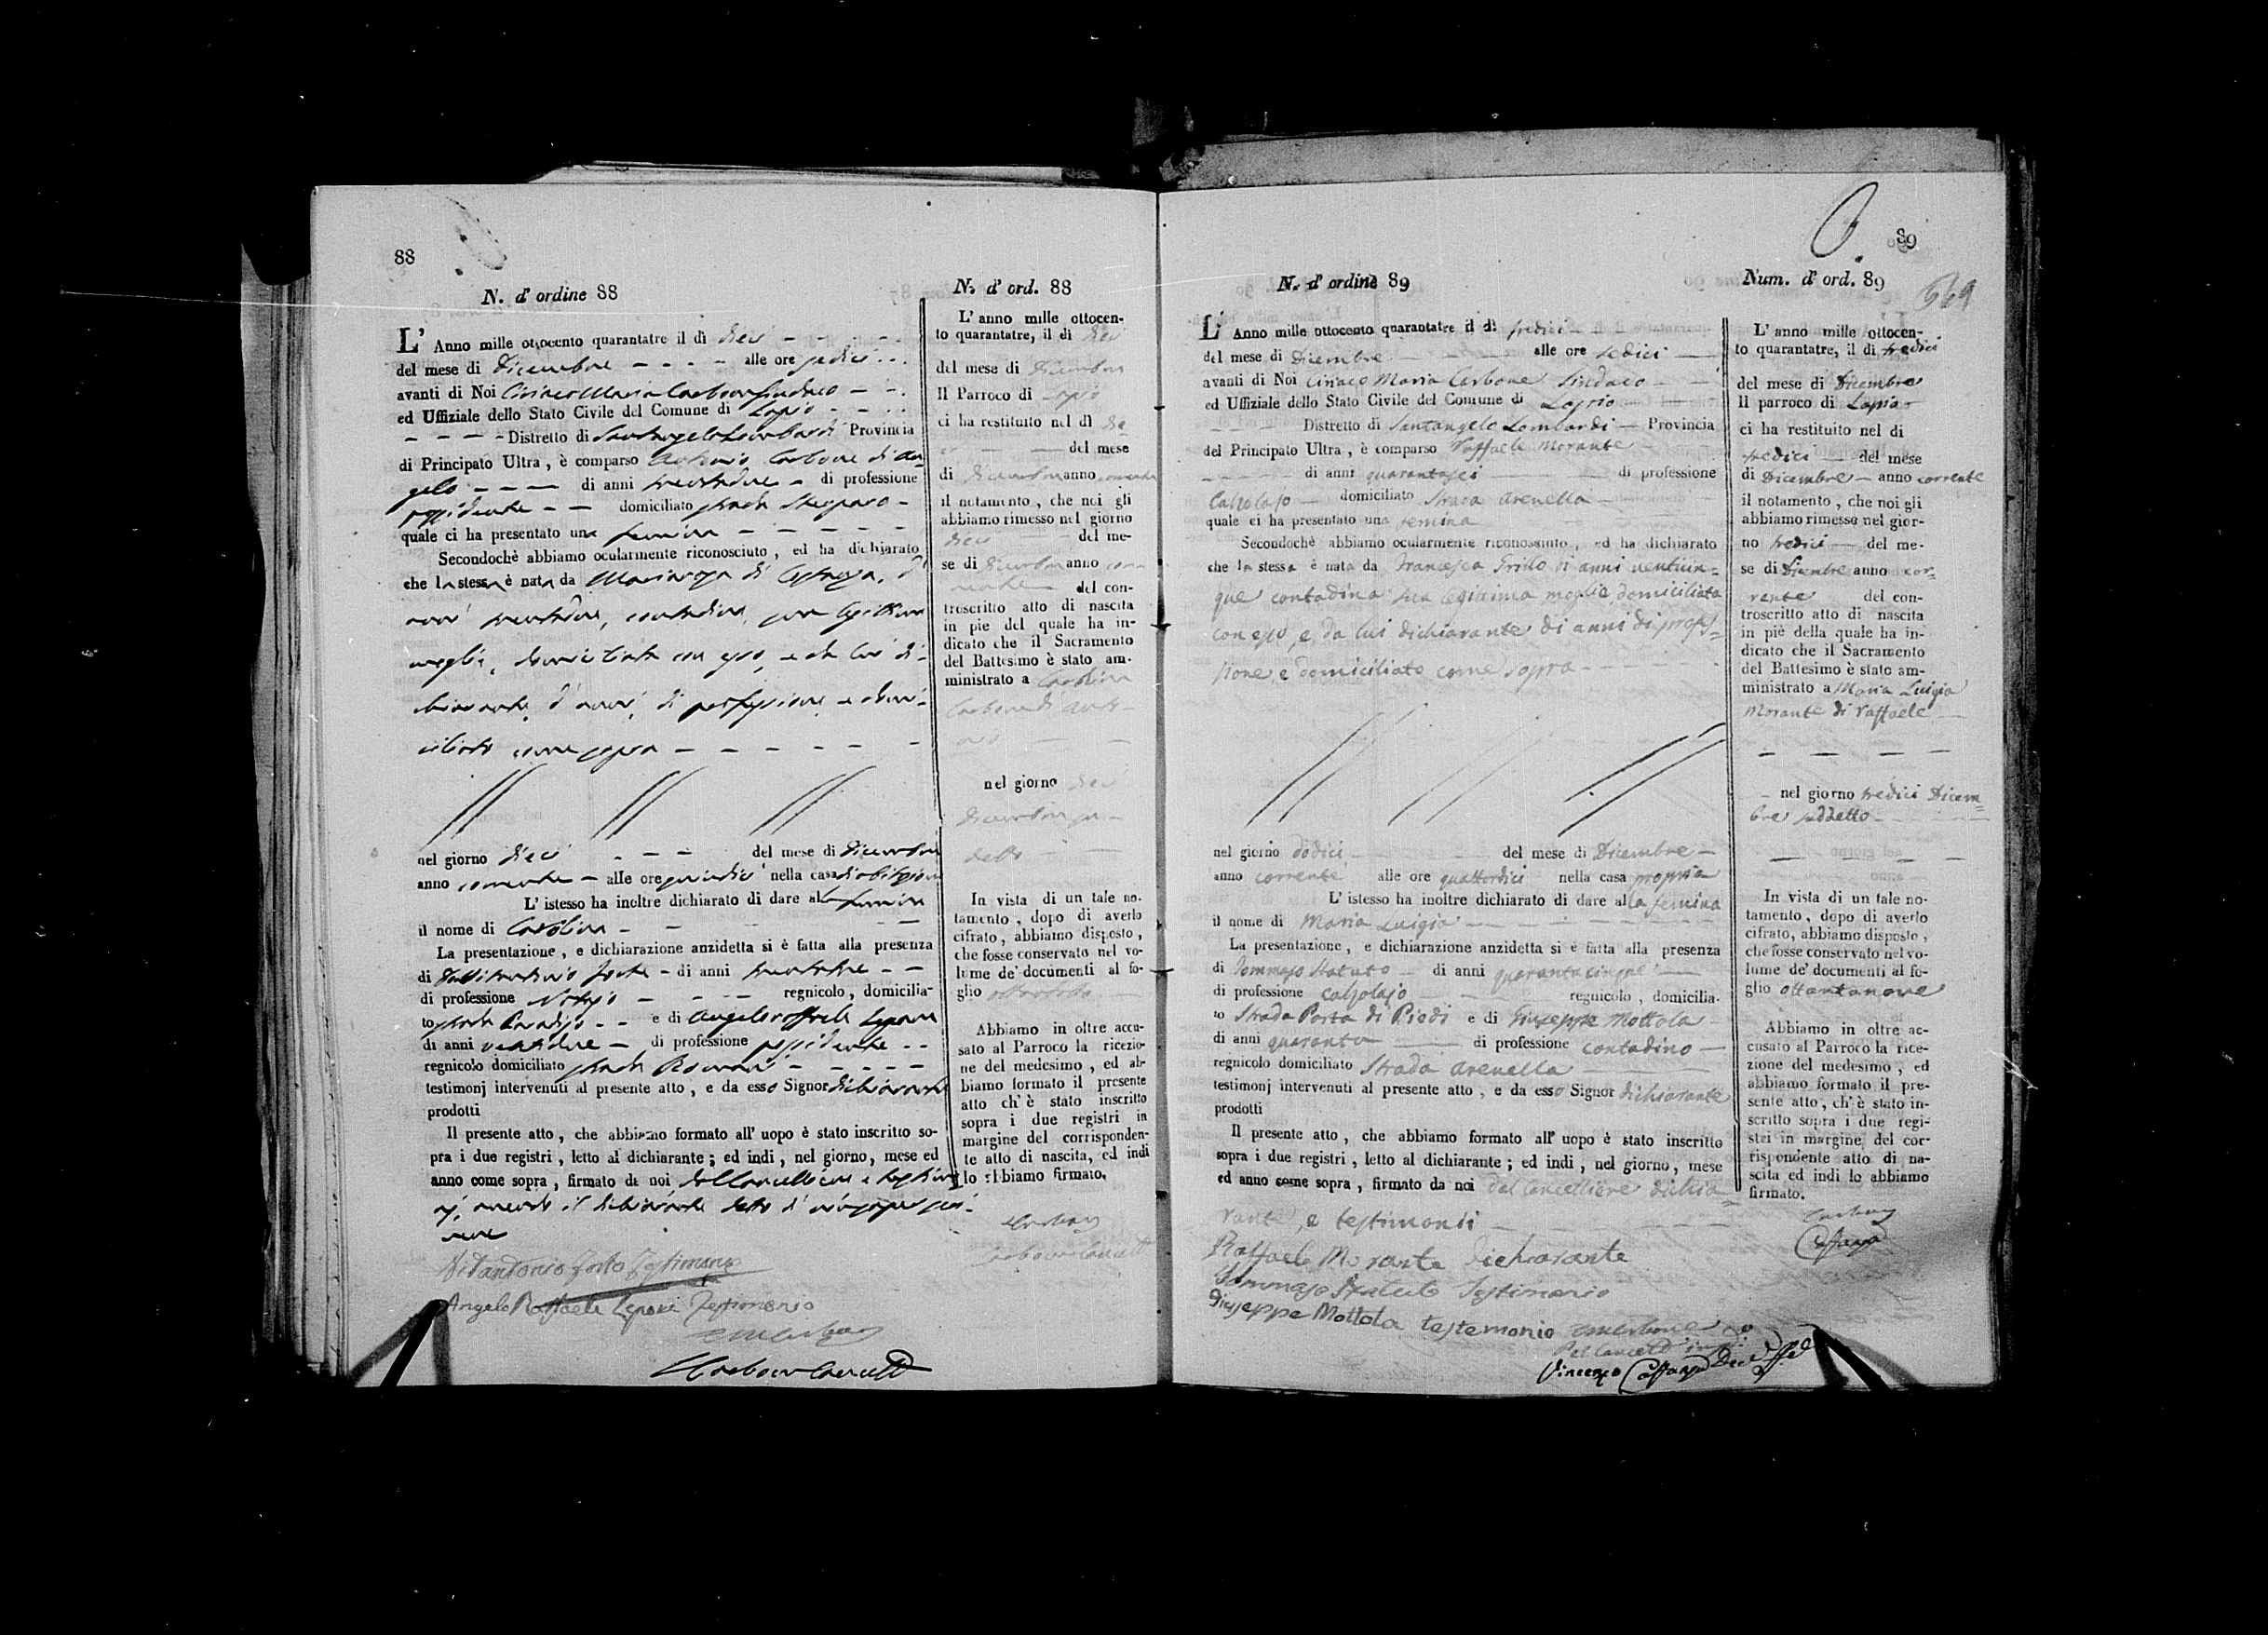 88
N. d' ordine 88
L' Anno mille ottocento quarantatre il dì dieci
del mese di Dicembre alle ore sedici
avanti di Noi Ciriaco Maria Carbone Sindaco
ed Uffiziale dello Stato Civile del Comune di Lapio
Distretto di Santangelo Lombardi Provincia
di Principato Ultra, è comparso Antonio Carbone di An-
gelo di anni trentadue di professione
possidente domiciliato strada
quale ci ha presentato una femina
Secondochè abbiamo ocularmente riconosciuto, ed ha dichiarato
che la stessa è nata da Mariarosa di d'
anni trentadue, contadina, sua legittima
moglie, domiciliata con esso, e da lui di-
chiarante, d'anni, di professione e domi-
ciliato come sopra
nel giorno dieci del mese di Dicembre
anno corrente alle ore quindici nella casa di abitazione
L' istesso ha inoltre dichiarato di dare alla femina
il nome di Carolina
La presentazione, e dichiarazione anzidetta si è fatta alla presenza
di Vitantonio Forte di anni
di professione Notajo regnicolo, domicilia-
to strada Paradiso e di Angeloraffaele
di anni ventidue di professione possidente
regnicolo domiciliato strada Romani
testimonj intervenuti al presente atto, e da esso Signor dichiarante
prodotti
Il presente atto, che abbiamo formato all' uopo è stato inscritto so-
pra i due registri, letto al dichiarante; ed indi, nel giorno, mese ed
anno come sopra, firmato da noi dal Cancelliere e testimo-
nj, avendo il dichiarante detto di non saper scri-
vere
Vitantonio Forte Testimonio
Angelo Raffaele Testimonio
CMCarbone
Carbone Cancell
N. d' ord. 88
L' anno mille ottocen-
to quarantatre, il di dieci
del mese di Dicembre
Il Parroco di Lapio
ci ha restituito nel dì die-
ci del mese
di Dicembre anno corrente
il notamento, che noi gli
abbiamo rimesso nel giorno
dieci del me-
se di Dicembre anno cor-
rente del con-
troscritto atto di nascita
in pie del quale ha in-
dicato che il Sacramento
del Battesimo è stato am-
ministrato a Carolina
Carbone di Anto-
nio
nel giorno dieci
Dicembre su-
detto
In vista di un tale no-
tamento, dopo di averlo
cifrato, abbiamo disposto,
che fosse conservato nel vo-
lume de' documenti al fo-
glio ottantotto
Abbiamo in oltre accu-
sato al Parroco la ricezio-
ne del medesimo, ed ab-
biamo formato il presente
atto ch' è stato inscritto
sopra i due registri in
margine del corrisponden-
te atto di nascita, ed indi
lo abbiamo firmato.
Carbone
Carbone Cancell
89
569
N. d' ordine 89
L' Anno mille ottocento quarantatre il dì tredici
del mese di Dicembre alle ore sedici
avanti di Noi Ciriaco Maria Carbone Sindaco
ed Uffiziale dello Stato Civile del Comune di Lapio
Distretto di Santangelo Lombardi Provincia
del Principato Ultra, è comparso Raffaele Morante
di anni quarantasei di professione
Calzolajo domiciliato Strada Arenella
quale ci ha presentato una femina
Secondochè abbiamo ocularmente riconosciuto, ed ha dichiarato
che la stessa è nata da Francesca Grillo di anni venticin=
que contadina sua legittima moglie domiciliata
con esso, e da lui dichiarante di anni di profes=
sione, e domiciliato come sopra
nel giorno dodici del mese di Dicembre
anno corrente alle ore quattordici nella casa propria
L' istesso ha inoltre dichiarato di dare alla femina
il nome di Maria Luigia
La presentazione, e dichiarazione anzidetta si è fatta alla presenza
di Tommaso Statuto di anni quarantacinque
di professione calzolajo regnicolo, domicilia-
to Strada Porta di Piedi e di Giuseppe Mottola
di anni quaranta di professione contadino
regnicolo domiciliato Strada Arenella
testimonj intervenuti al presente atto, e da esso Signor dichiarante
prodotti
Il presente atto, che abbiamo formato all' uopo è stato inscritto
sopra i due registri, letto al dichiarante; ed indi, nel giorno, mese
ed anno come sopra, firmato da noi dal Cancelliere dichia=
rante, e testimonii
Raffaele Morante dichiarante
Tommaso Statuto Testimonio
Giuseppe Mottola testemonio CMCarbone
Vincenzo Caffarya
Num. d' ord. 89
L' anno mille ottocen-
to quarantatre, il di tredici
del mese di Dicembre
Il parroco di Lapio
ci ha restituito nel di
tredici del mese
di Dicembre anno corrente
il notamento, che noi gli
abbiamo rimesso nel gior-
no tredici del me-
se di Dicembre anno cor=
rente del con-
troscritto atto di nascita
in piè della quale ha in-
dicato che il Sacramento
del Battesimo è stato am-
ministrato a Maria Luigia
Morante di Raffaele
nel giorno tredici Dicem=
bre suddetto
In vista di un tale no-
tamento, dopo di averlo
cifrato, abbiamo disposto,
che fosse conservato nel vo-
lume de' documenti al fo-
glio ottantanove
Abbiamo in oltre ac-
cusato al Parroco la rice-
zione del medesimo, ed
abbiamo formato il pre-
sente atto, ch' è stato in-
scritto sopra i due regi-
stri in margine del cor-
rispondente atto di na-
scita ed indi lo abbiamo
firmato.
Carbone